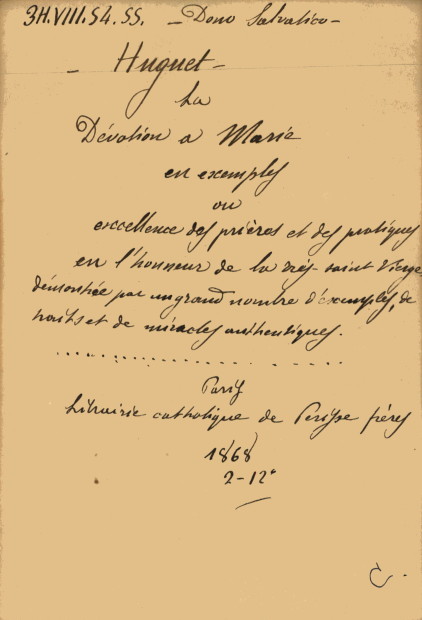 3H.VIII.54.55. - Dono Salvatico -
- Huguet -
La
Dévotion a Marie
en exemples
ou
excellence des prières et des pratiques
en l'honneur de la très saint Vierge
démontrée par un grand nombre d'exemples, de
traits et de miracles authentiques.
Paris
Librairie catholique de Perisse frères
1868
2-12°
C.